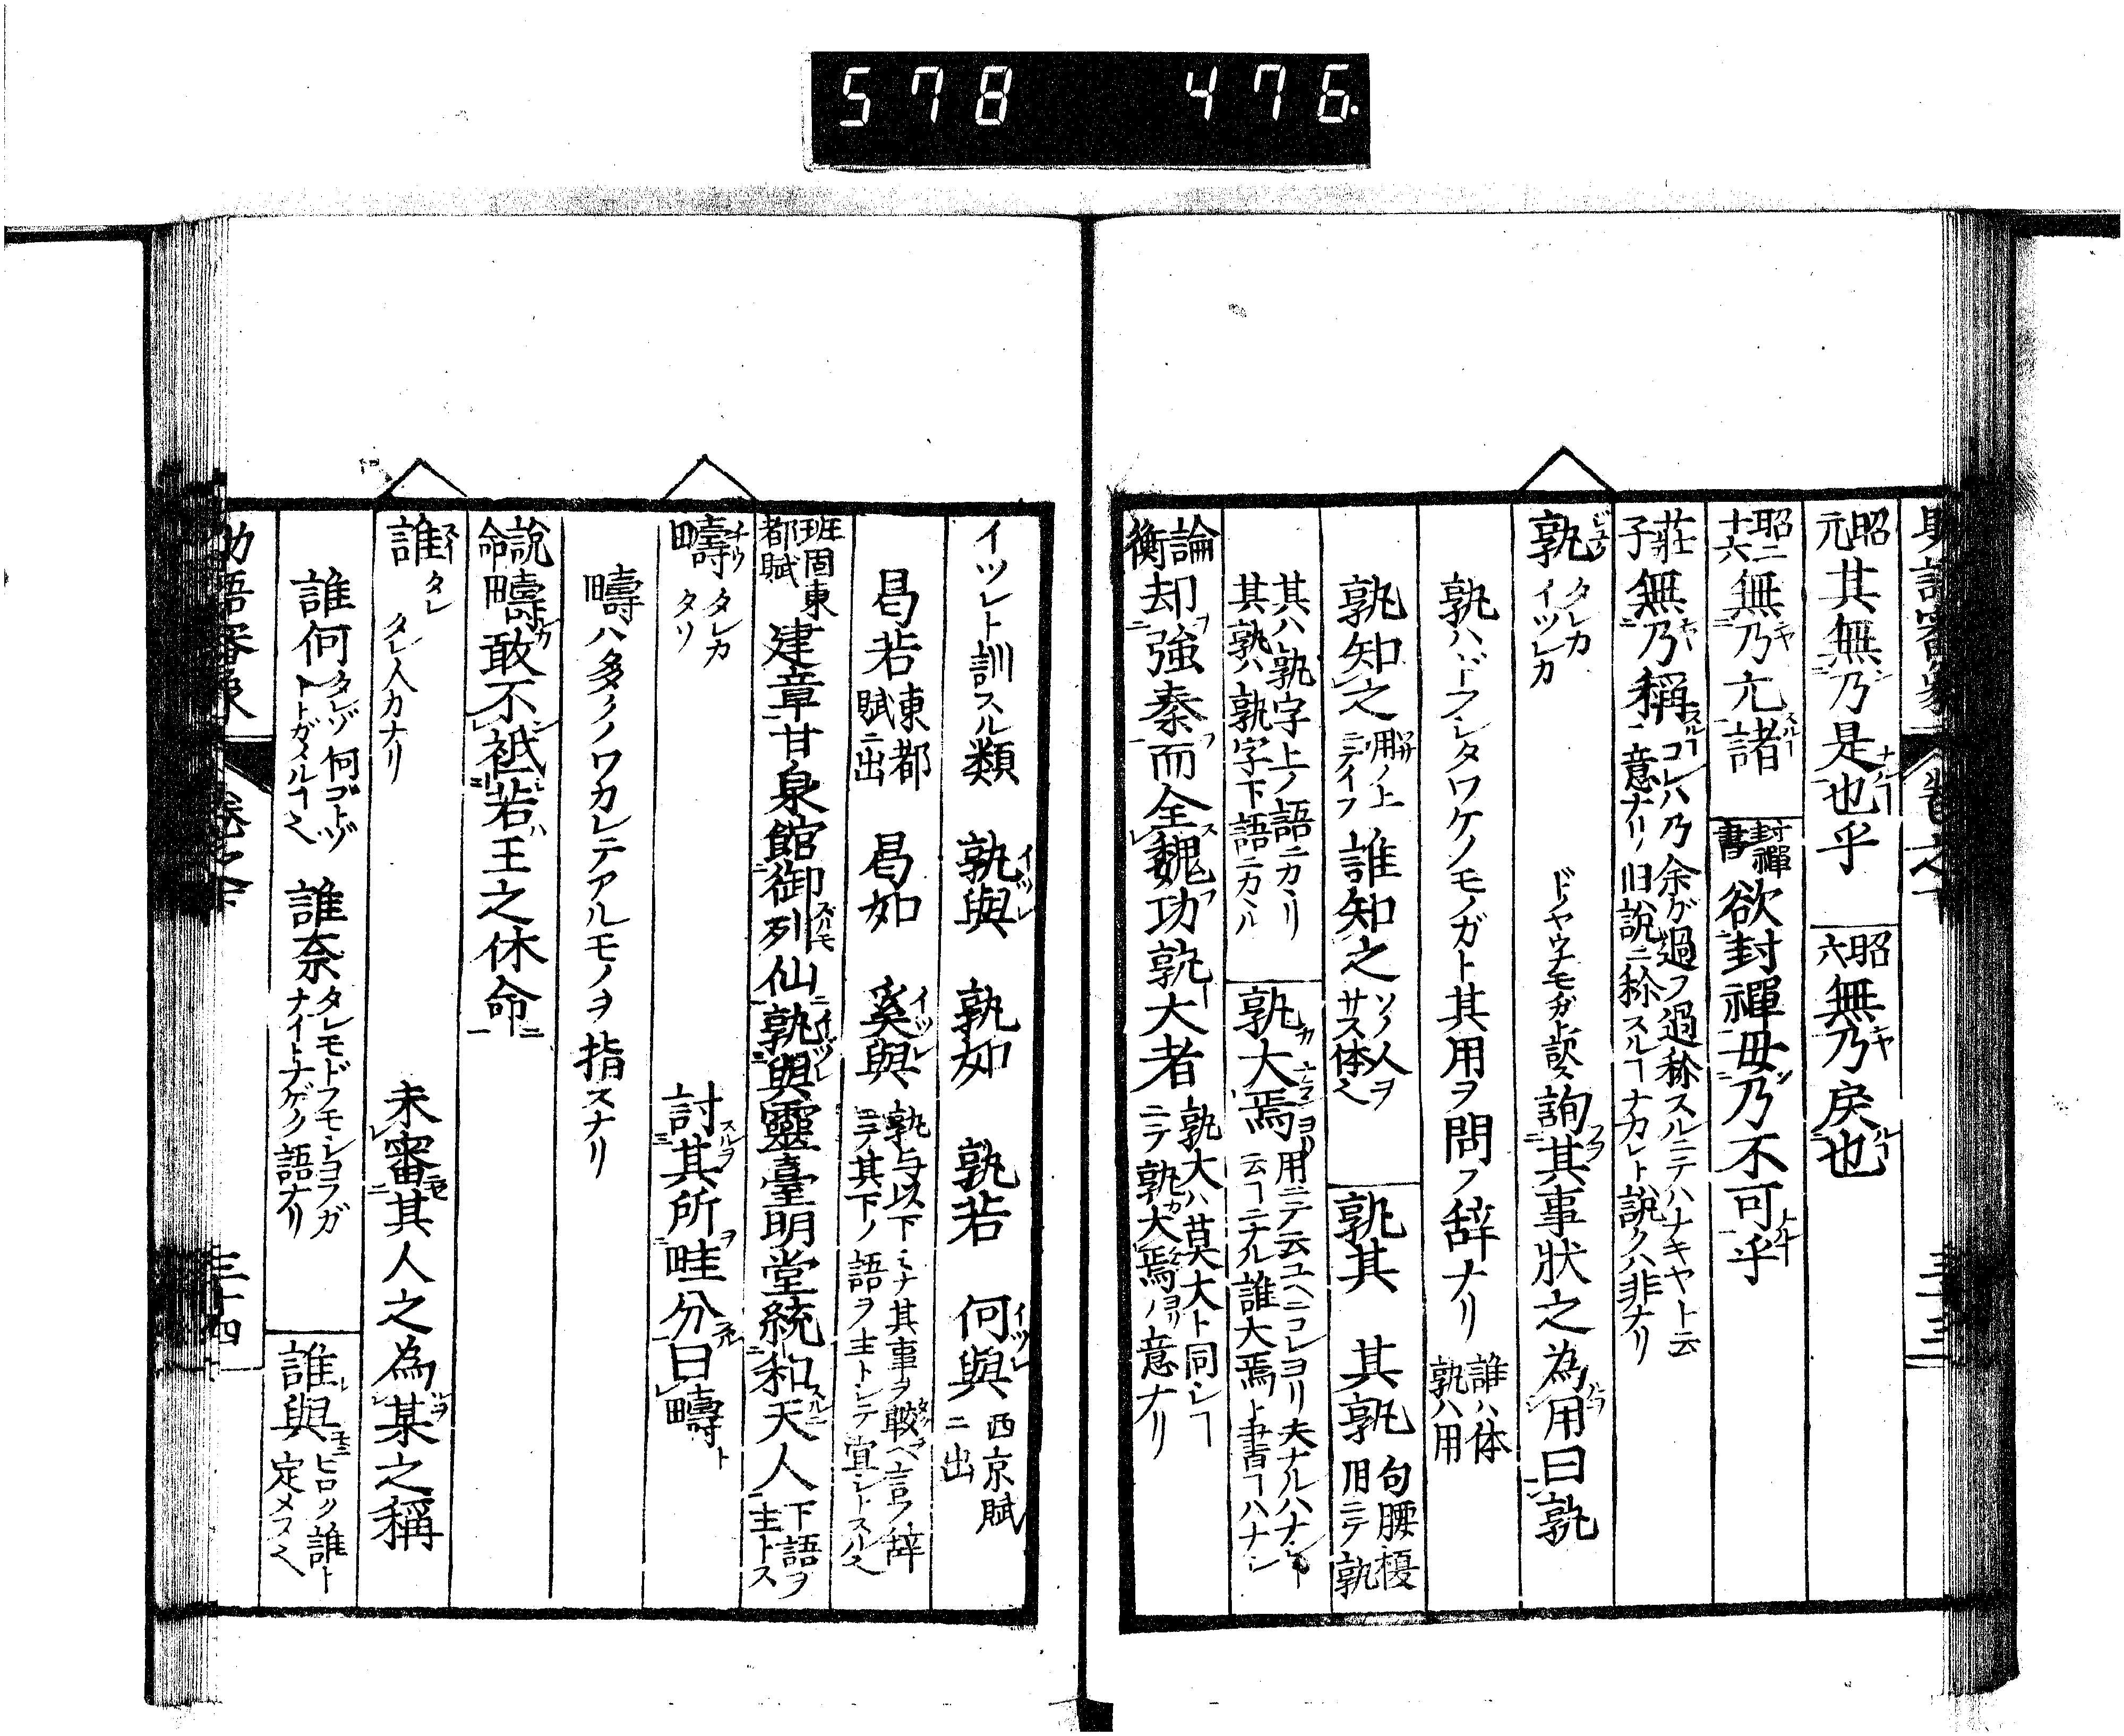 578 476
昭元 其無乃是也乎 昭六 無乃戾也
昭二十六 無乃亢諸 封禪書 欲封禪毋乃不可乎
莊子 無乃稱 コレハ乃余ガ過フ過稱スルニテハナキヤト云意ナリ旧說ニ稱スルヿナカレト說クハ非ナリ
孰 タレカ イツレカ 詢其事狀之為用曰孰
孰ハドフシタワケノモノガト其用ヲ問フ辞ナリ 誰ハ体 孰ハ用
孰知之 用ノ上ニテイフ 誰知之 ソノ人ヲサス体也 孰其 其孰 句腰 用ニテ孰
其ハ孰字上ノ語ニカヽリ其孰ハ孰字下語ニカヽル 孰大焉 用ニテ云ユヘニコレヨリ大ナルハナシト云ヿニナル誰大焉ト書ヿハナシ
論衡 却強秦而全魏功孰大者 孰大ハ莫大ト同シヿニテ孰大焉ノ意ナリ
イツレト訓スル類 孰與 孰如 孰若 何與 西京賦ニ出
曷若 東都賦ニ出 曷如 奚與 孰与以下ミナ其事ヲ較ヘ言フ辞ニテ其下ノ語ヲ主トシテ宜シトスル也
班固東都賦 建章甘泉館御列仙孰與靈臺明堂統和天人 下語ヲ主トス
疇 チウ タレカ タソ 討其所畦分曰疇
疇ハ多クノワカレテアルモノヲ指スナリ
說命 疇敢不祗若王之休命
誰 スイ タレ タレ人カナリ 未審其人之為某之稱
誰何 タレゾ何ゴトゾトトガメルヿ也 誰奈 タレモドフモシヨフガナイトナゲク語ナリ 誰與 ヒロク誰ト定メヌ也
助語審象 卷之下 三十四